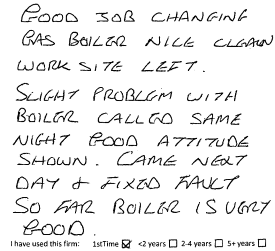 GOOD JOB CHANGING
GAS BOILER NICE CLEAN
WORK SITE LEFT.
SLIGHT PROBLEM WITH
BOILER CALLED SAME
NIGHT GOOD ATTITUDE
SHOWN. CAME NEXT
DAY & FIXED FAULT
SO FAR BOILER IS VERY
GOOD.
I have used this firm: 1stTime ☒ <2 years ☐ 2-4 years ☐ 5+ years ☐